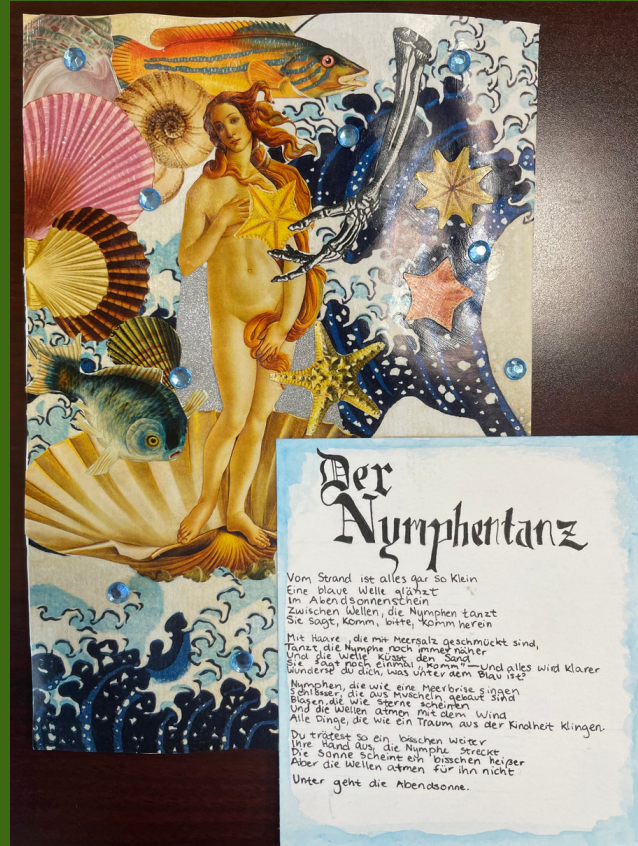 Der
Nymphentanz
Vom Strand ist alles gar so klein
Eine blaue Welle glänzt
Im Abendsonnenschein
Zwischen Wellen, die Nymphen tanzt
Sie sagt, Komm, bitte, komm herein
Mit Haare, die mit Meersalz geschmückt sind,
Tanzt, die Nymphe noch immer näher
Und die Welle küsst den Sand
Sie sagt noch einmal, „komm" — Und alles wird klarer
Wunderst du dich, was unter dem Blau ist?
Nymphen, die wie eine Meerbrise singen
Schlösser, die aus Muscheln, gebaut sind
Blasen, die wie Sterne scheinten
Und die Wellen atmen mit dem Wind
Alle Dinge, die wie ein Traum aus der Kindheit klingen.
Du trätest so ein bisschen weiter
Ihre Hand aus, die Nymphe streckt
Die Sonne scheint ein bisschen heißer
Aber die Wellen atmen für ihn nicht
Unter geht die Abendsonne.